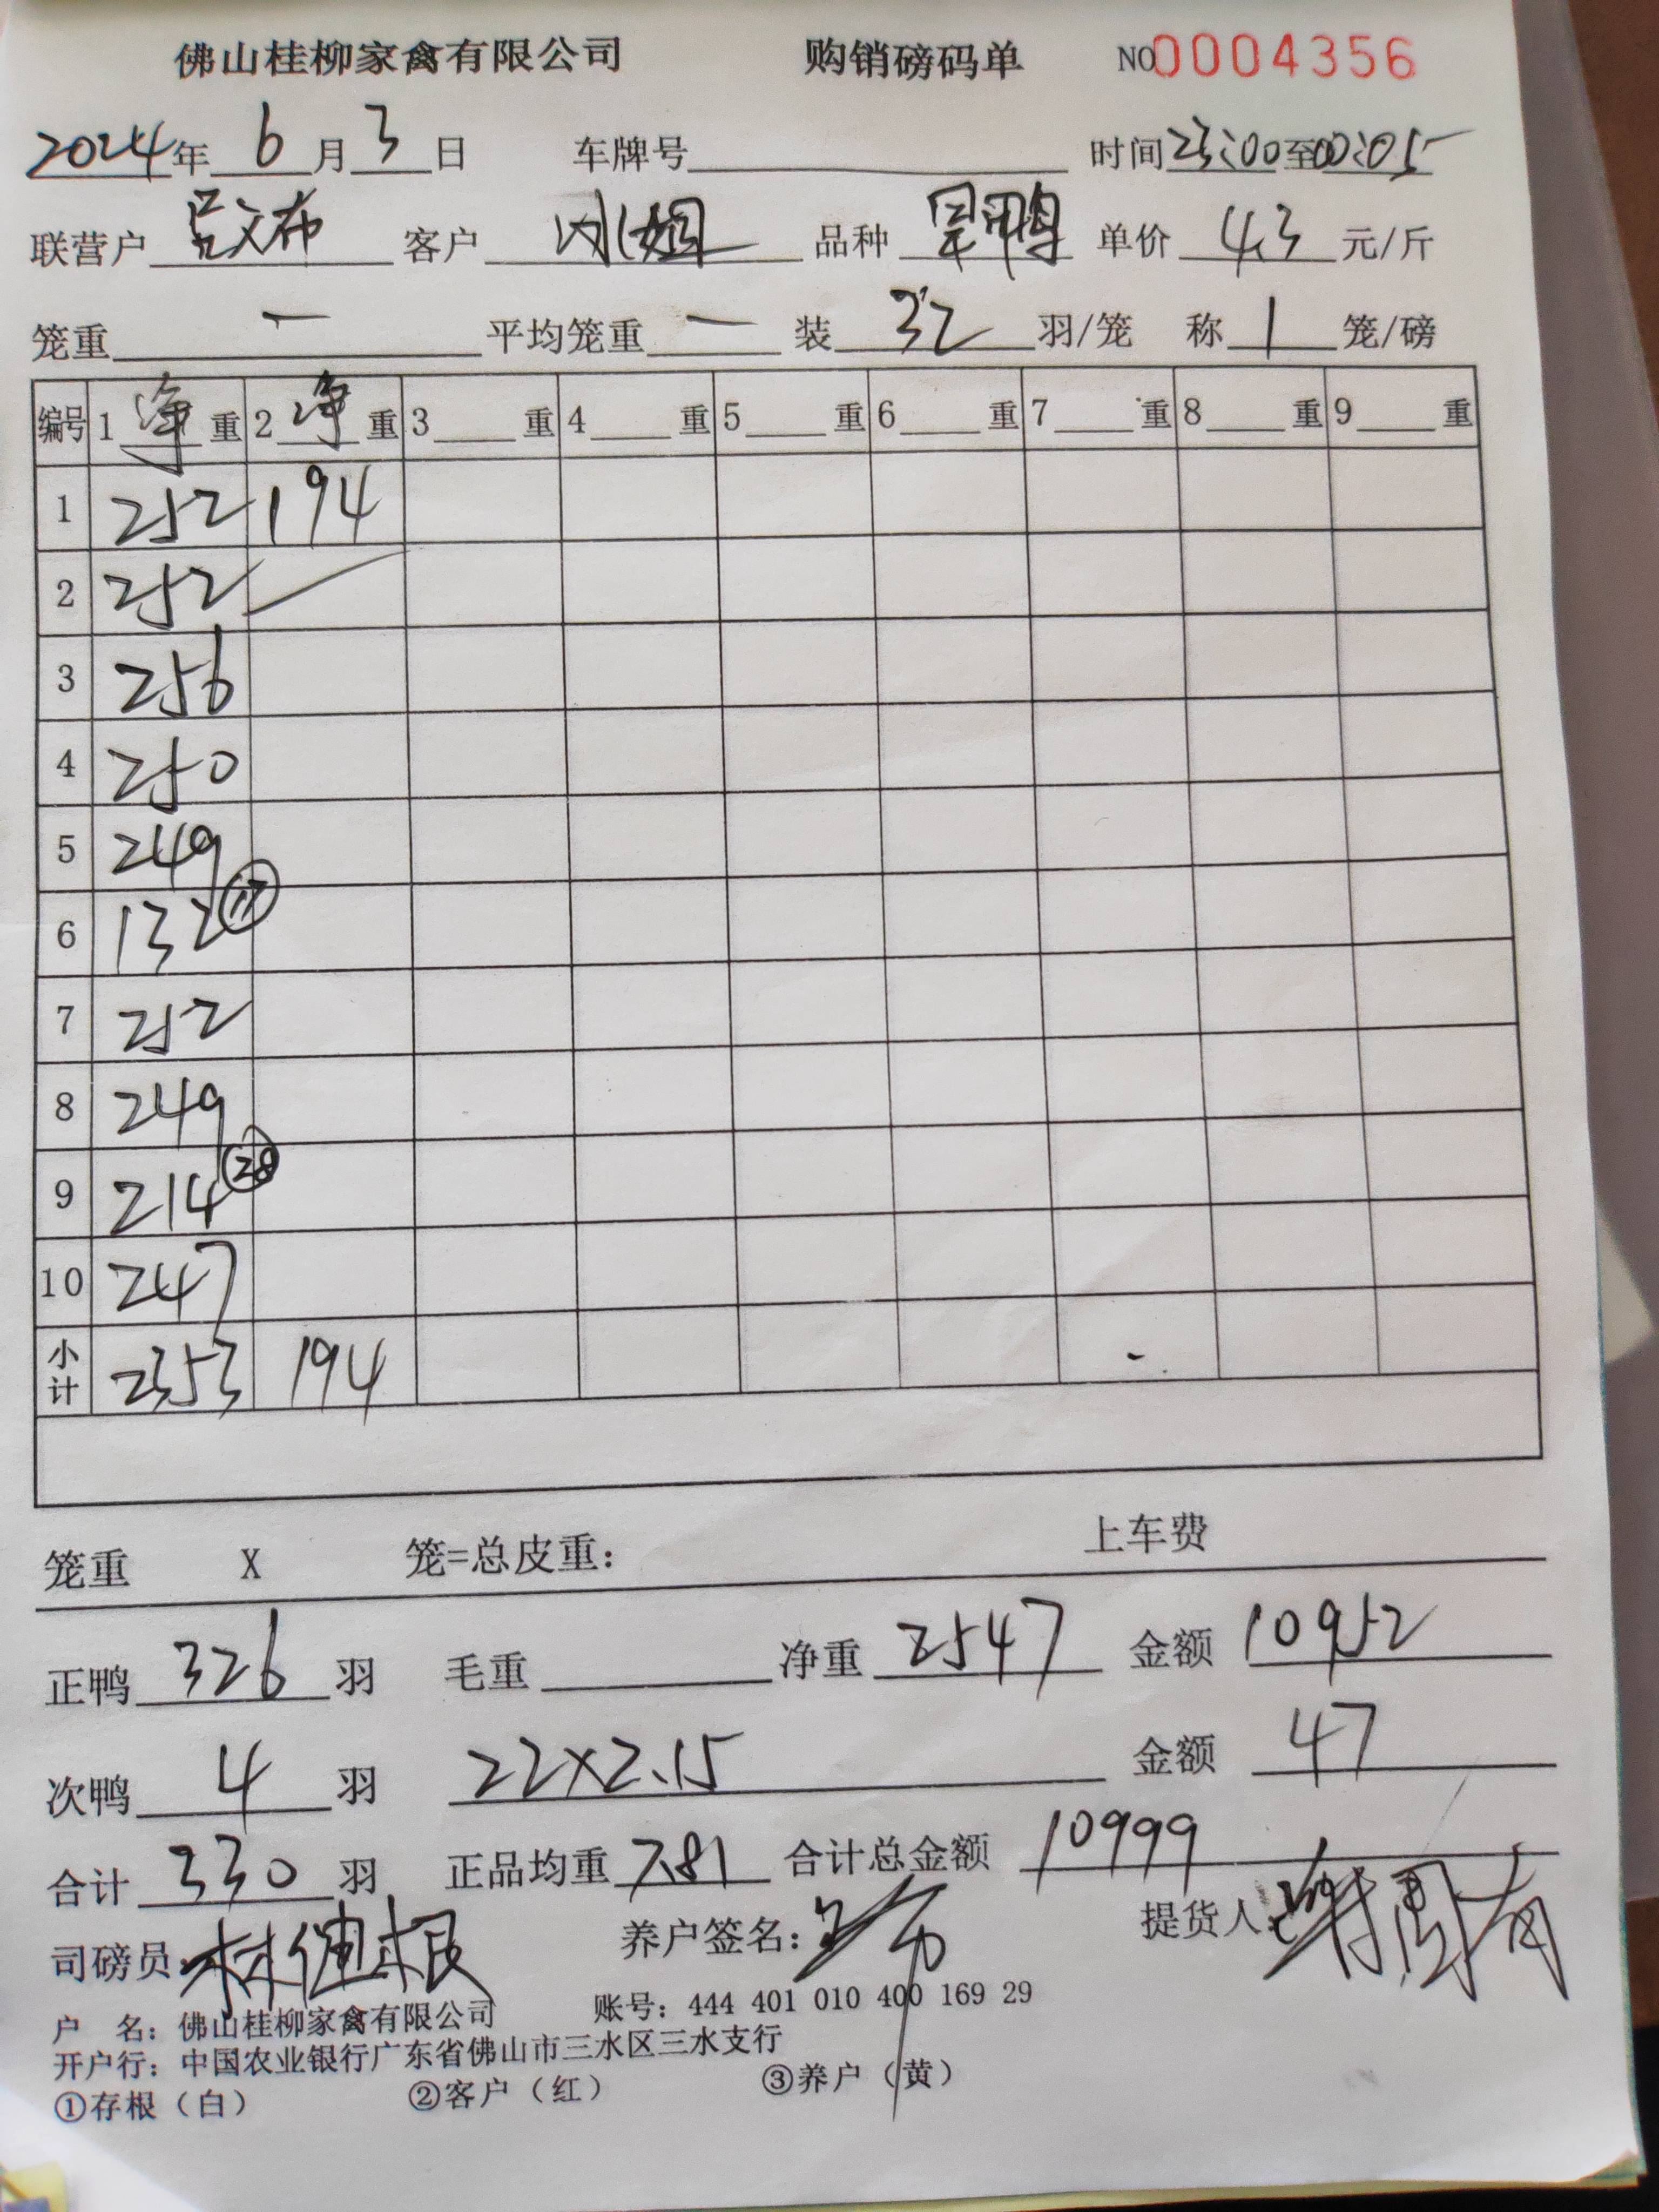 佛山桂柳家禽有限公司 购销磅码单 NO0004356
2024年 6 月 3 日 车牌号 时间 23:00 至 00:05
联营户 吕文布 客户 姐 品种 鸭 单价 4.3 元/斤
笼重 一 平均笼重 一 装 32 羽/笼 称 1 笼/磅
编号 1 净 重 2 净 重 3 重 4 重 5 重 6 重 7 重 8 重 9 重
1 252 194
2 252
3 256
4 250
5 249
6 132 ⑰
7 252
8 249
9 214 ㉘
10 247
小计 2353 194
笼重 X 笼=总皮重: 上车费
正鸭 326 羽 毛重 净重 2547 金额 10952
次鸭 4 羽 22×2.15 金额 47
合计 330 羽 正品均重 7.81 合计总金额 10999
司磅员: 林继根 养户签名: 提货人:
户 名: 佛山桂柳家禽有限公司 账号: 444 401 010 400 169 29
开户行: 中国农业银行广东省佛山市三水区三水支行
①存根（白） ②客户（红） ③养户（黄）